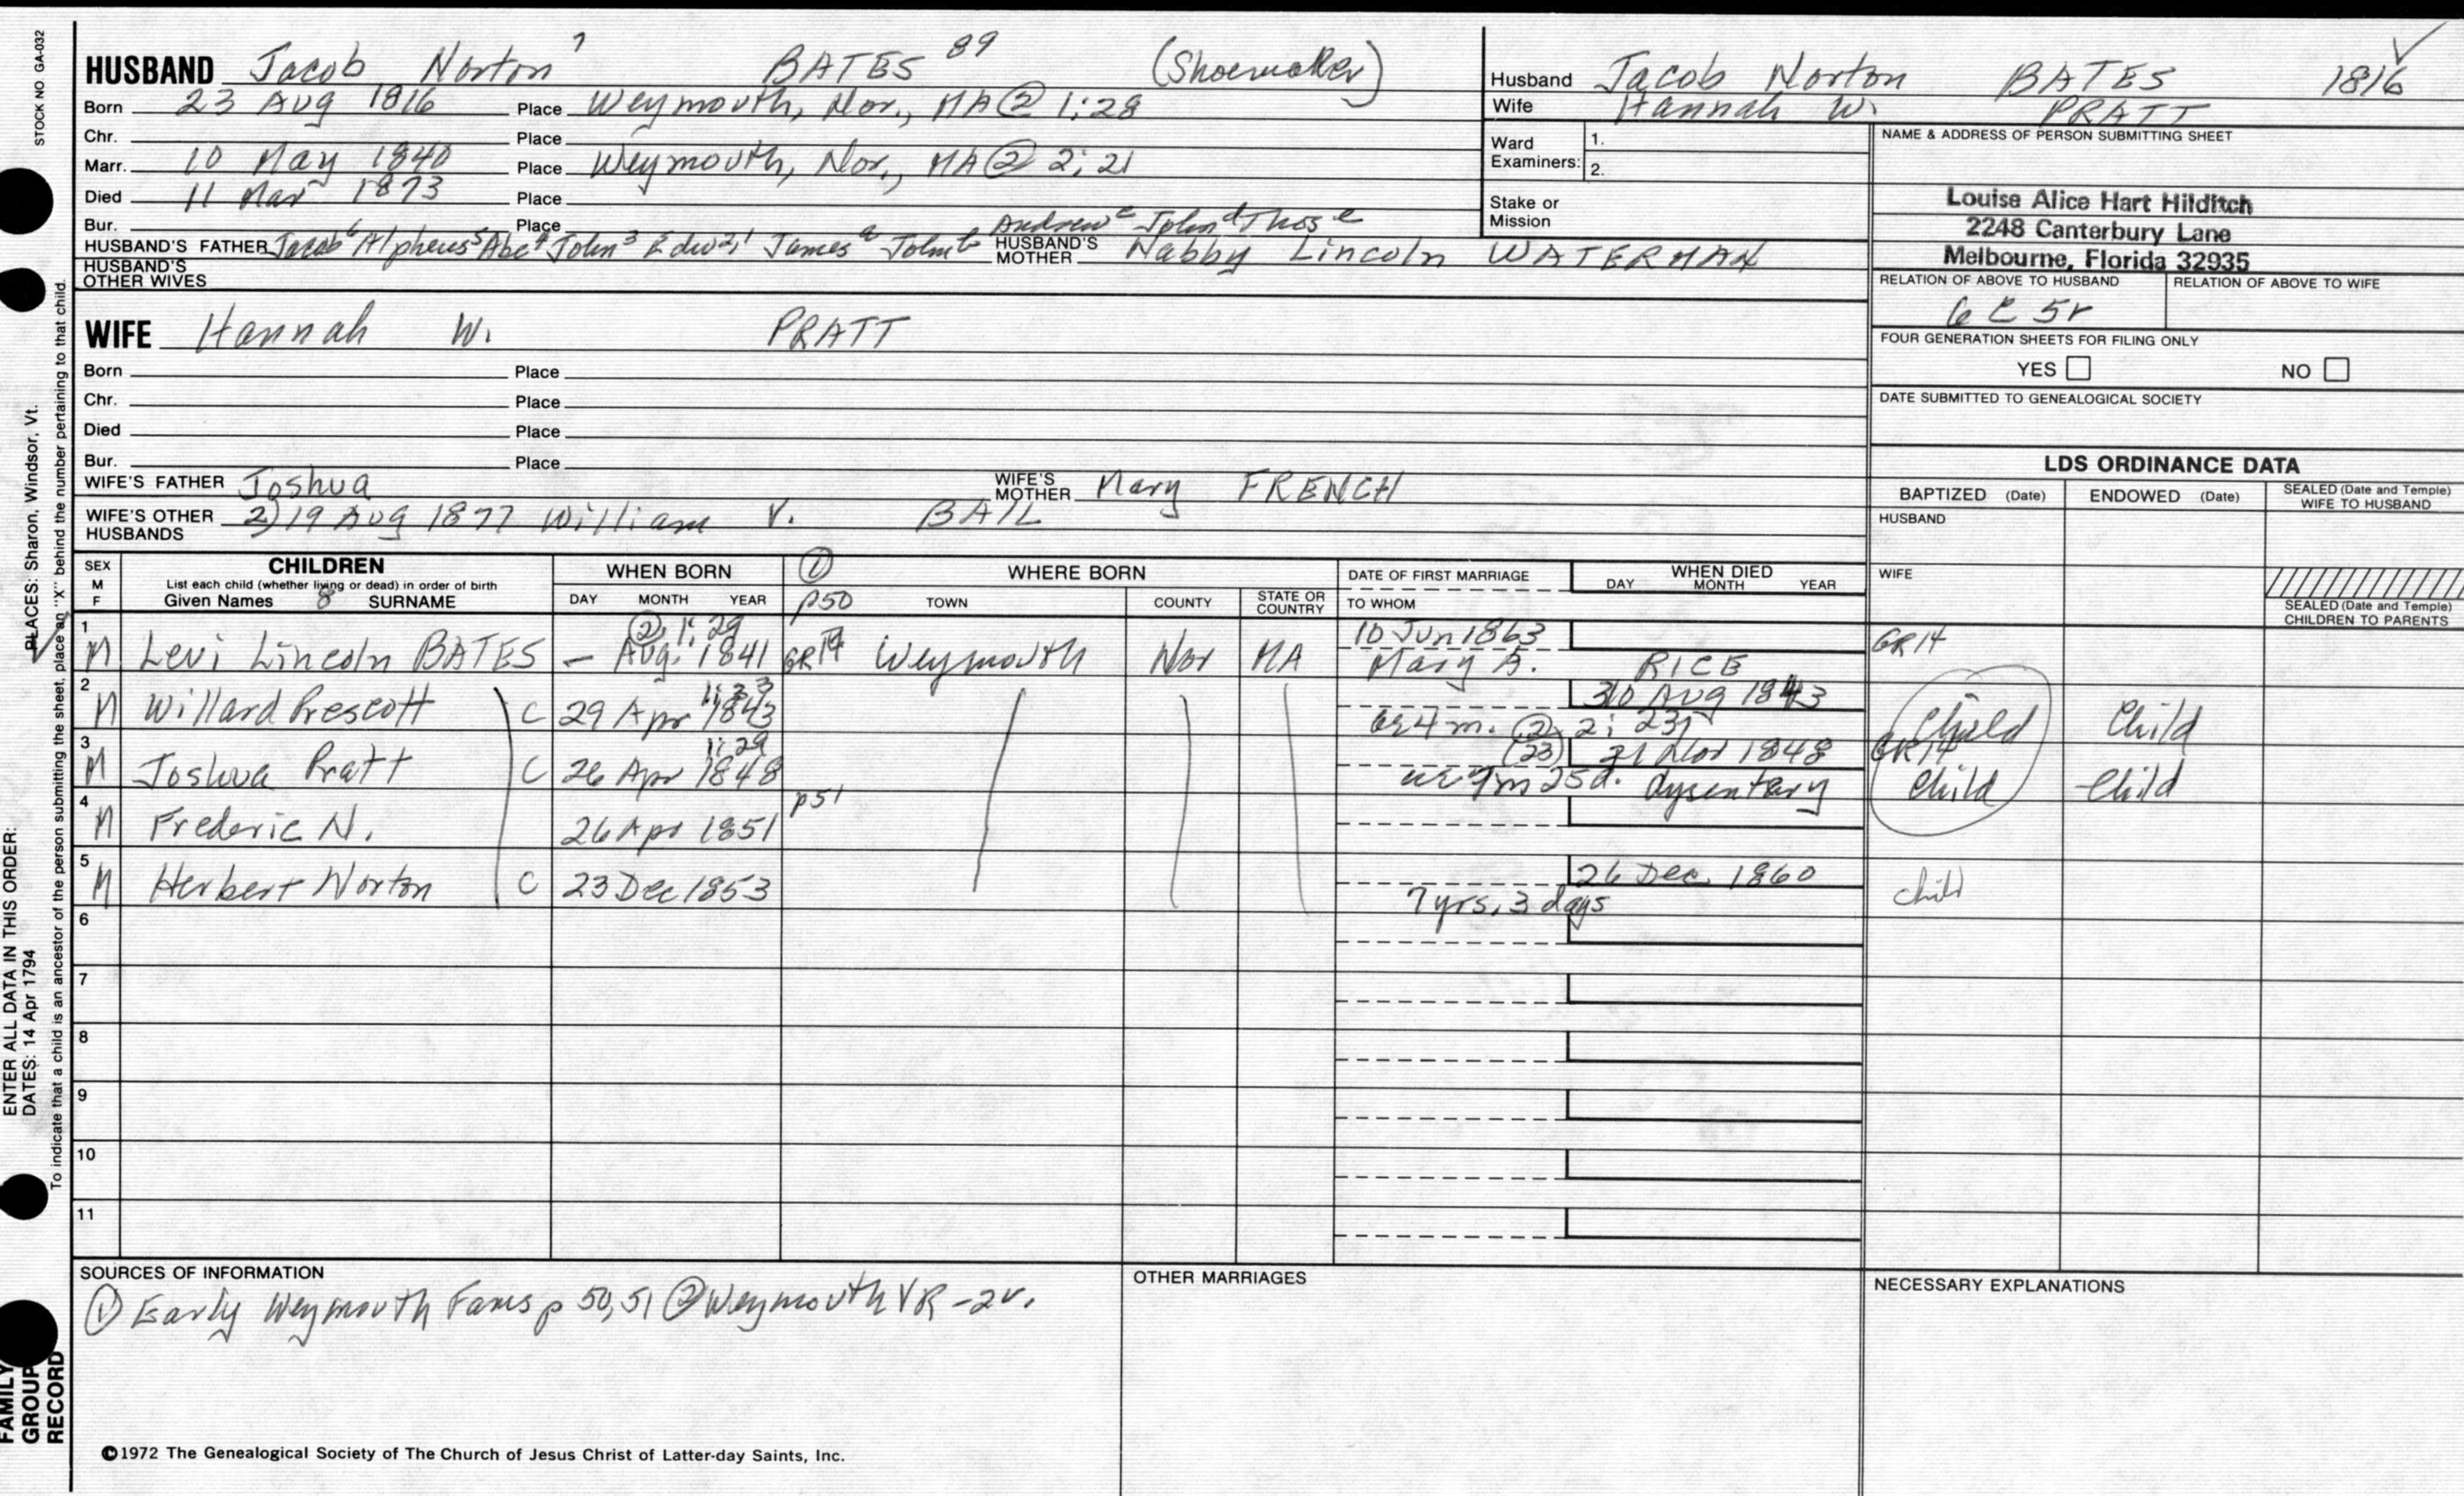 STOCK NO GA-032
HUSBAND Jacob Norton 7 BATES 89 (Shoemaker)
Born 23 Aug 1816 Place Weymouth, Nor., MA @ 1:28
Chr. Place
Marr. 10 May 1840 Place Weymouth, Nor., MA ② 2:21
Died 11 Mar 1873 Place
Bur. Place
HUSBAND'S FATHER Jacob 6 Alpheus 5 Abe 4 John 3 Edw 2,1 James a John b Andrew c John d Thos e HUSBAND'S MOTHER Nabby Lincoln WATERMAN
HUSBAND'S OTHER WIVES
Husband Jacob Norton BATES 1816
Wife Hannah W. PRATT
Ward Examiners: 1.
2.
Stake or Mission
NAME & ADDRESS OF PERSON SUBMITTING SHEET
Louise Alice Hart Hilditch
2248 Canterbury Lane
Melbourne, Florida 32935
RELATION OF ABOVE TO HUSBAND RELATION OF ABOVE TO WIFE
6 C 5r
FOUR GENERATION SHEETS FOR FILING ONLY
YES NO
DATE SUBMITTED TO GENEALOGICAL SOCIETY
WIFE Hannah W. PRATT
Born Place
Chr. Place
Died Place
Bur. Place
WIFE'S FATHER Joshua WIFE'S MOTHER Mary FRENCH
WIFE'S OTHER HUSBANDS 2) 19 Aug 1877 William V. BAIL
LDS ORDINANCE DATA
BAPTIZED (Date) ENDOWED (Date) SEALED (Date and Temple) WIFE TO HUSBAND
HUSBAND
WIFE
SEALED (Date and Temple) CHILDREN TO PARENTS
SEX M F CHILDREN WHEN BORN ① WHERE BORN DATE OF FIRST MARRIAGE WHEN DIED
List each child (whether living or dead) in order of birth
Given Names 8 SURNAME DAY MONTH YEAR p50 TOWN COUNTY STATE OR COUNTRY TO WHOM DAY MONTH YEAR
② 1:29 10 Jun 1863
1 M Levi Lincoln BATES – Aug. 1841 GR14 Weymouth Nor MA Mary A. RICE GR14
1:33 30 Aug 1843
2 M Willard Prescott C 29 Apr 1843 ae 4 m. ② 2:23 Child Child
1:29 (23) 21 Nov 1848 GR14
3 M Joshua Pratt C 26 Apr 1848 ae 7m 25d. dysentary Child Child
p51
4 M Frederic N. 26 Apr 1851
26 Dec. 1860
5 M Herbert Norton C 23 Dec 1853 7 yrs, 3 days child
6
7
8
9
10
11
SOURCES OF INFORMATION
① Early Weymouth Fams p 50, 51 ② Weymouth VR – 2v.
OTHER MARRIAGES
NECESSARY EXPLANATIONS
©1972 The Genealogical Society of The Church of Jesus Christ of Latter-day Saints, Inc.
FAMILY GROUP RECORD
ENTER ALL DATA IN THIS ORDER:
DATES: 14 Apr 1794
PLACES: Sharon, Windsor, Vt.
To indicate that a child is an ancestor of the person submitting the sheet, place an "X" behind the number pertaining to that child.